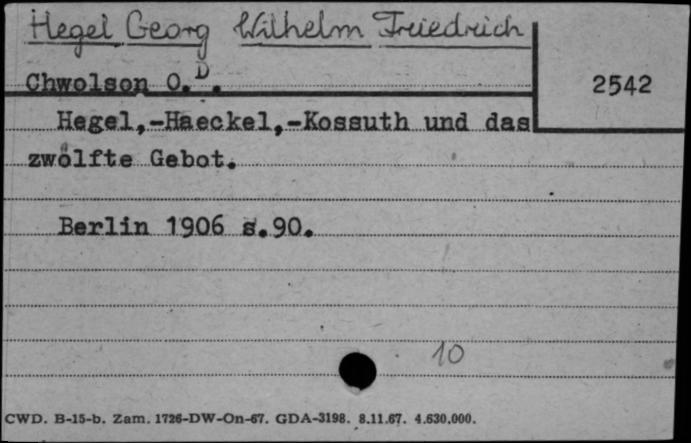 Hegel Georg Wilhelm Friedrich
Chwolson O.D.
2542
Hegel,-Haeckel,-Kossuth und das
zwölfte Gebot.
Berlin 1906 s.90.
10
CWD. B-15-b. Zam. 1726-DW-On-67. GDA-3198. 8.11.67. 4.630.000.